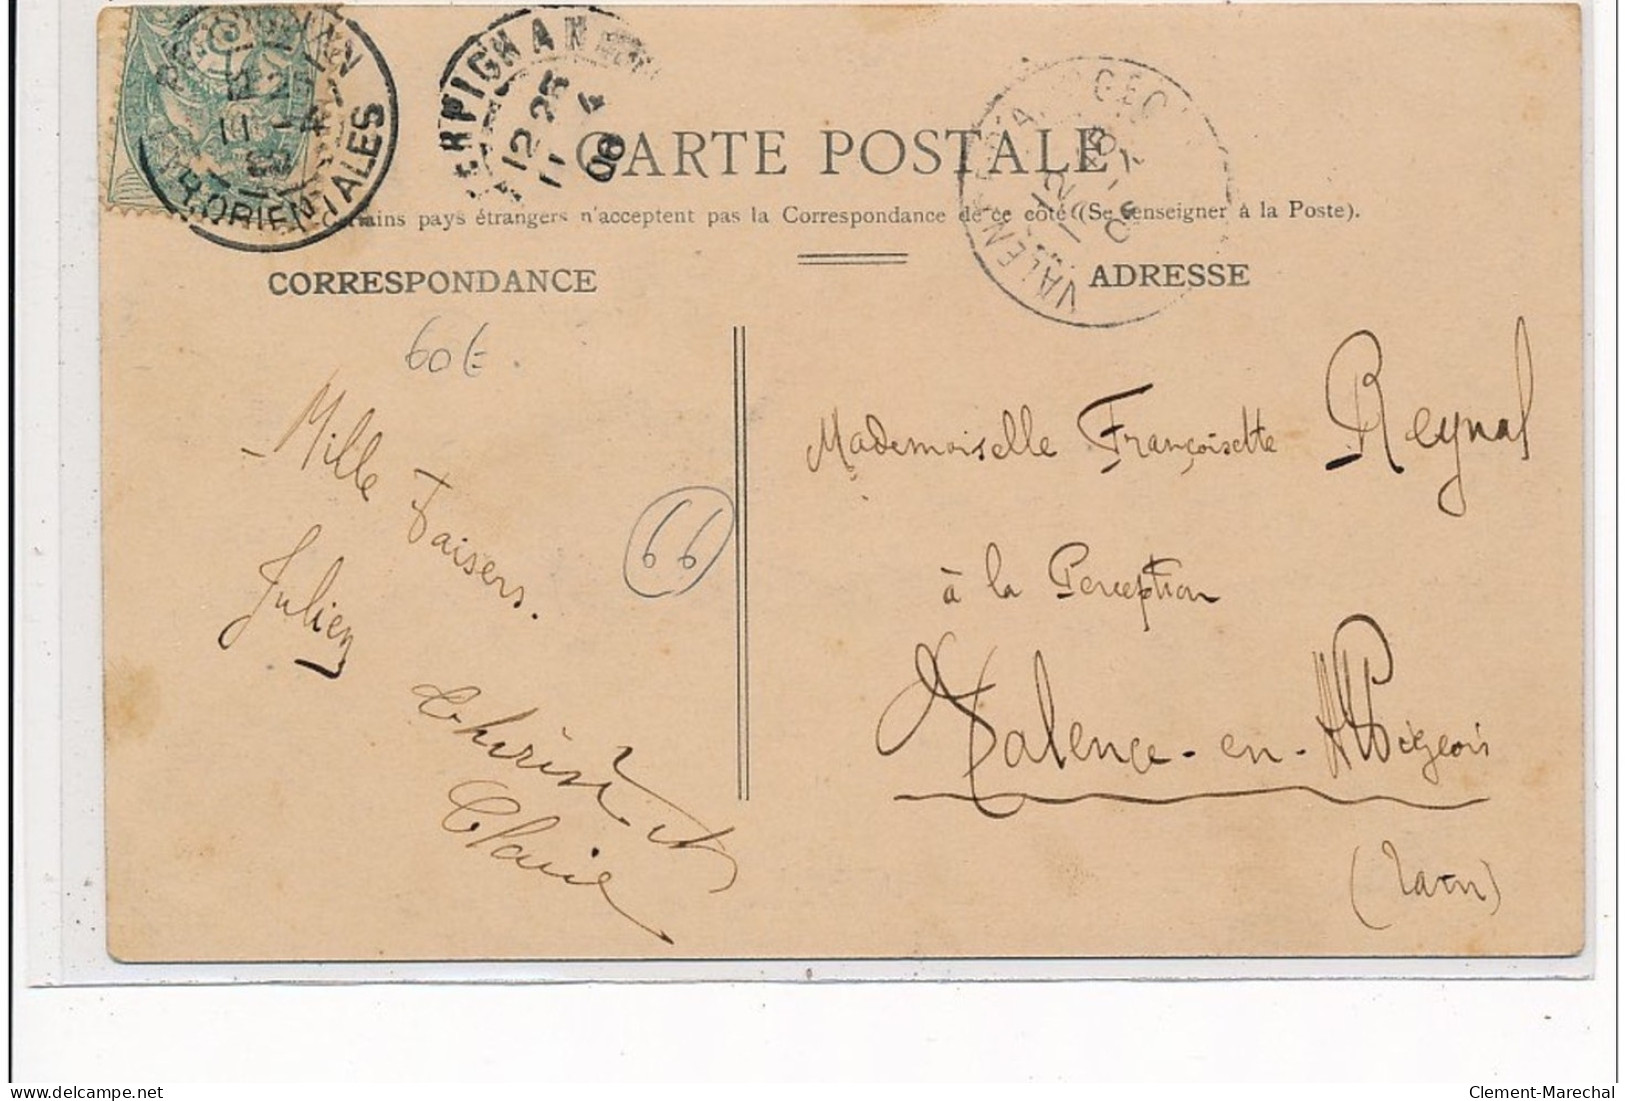 PERPIGNAN
12 25
11 4
06
ORIENTALES
CARTE POSTALE
Certains pays étrangers n'acceptent pas la Correspondance de ce côté (Se renseigner à la Poste).
CORRESPONDANCE
ADRESSE
60€.
Mille Baisers.
Julien
Claire
66
Mademoiselle Françoisette Reynal
à la Perception
Valence-en-Albigeois
(Tarn)
delcampe.net
Clement-Marechal